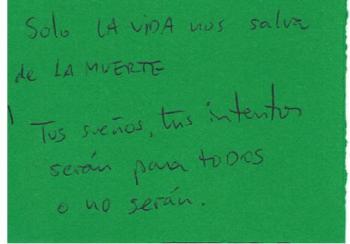 Solo LA VIDA nos salva
de LA MUERTE
Tus sueños, tus intentos
serán para TODOS
o no serán.